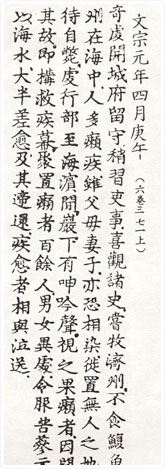 文宗元年四月庚午(六卷三七一上)
奇虔開城府留守稍習吏事喜觀諸史嘗牧濟州不食鰒魚
州在海中人多癩疾雖父母妻子亦恐相染徙置無人之地
待自斃虔行部至海濱聞巖下有呻吟聲視之果癩者因問
其故卽搆救疾幕聚置癩者百餘人男女異處令服苦蔘元
以海水大半差愈及其遞還疾愈者相與泣送